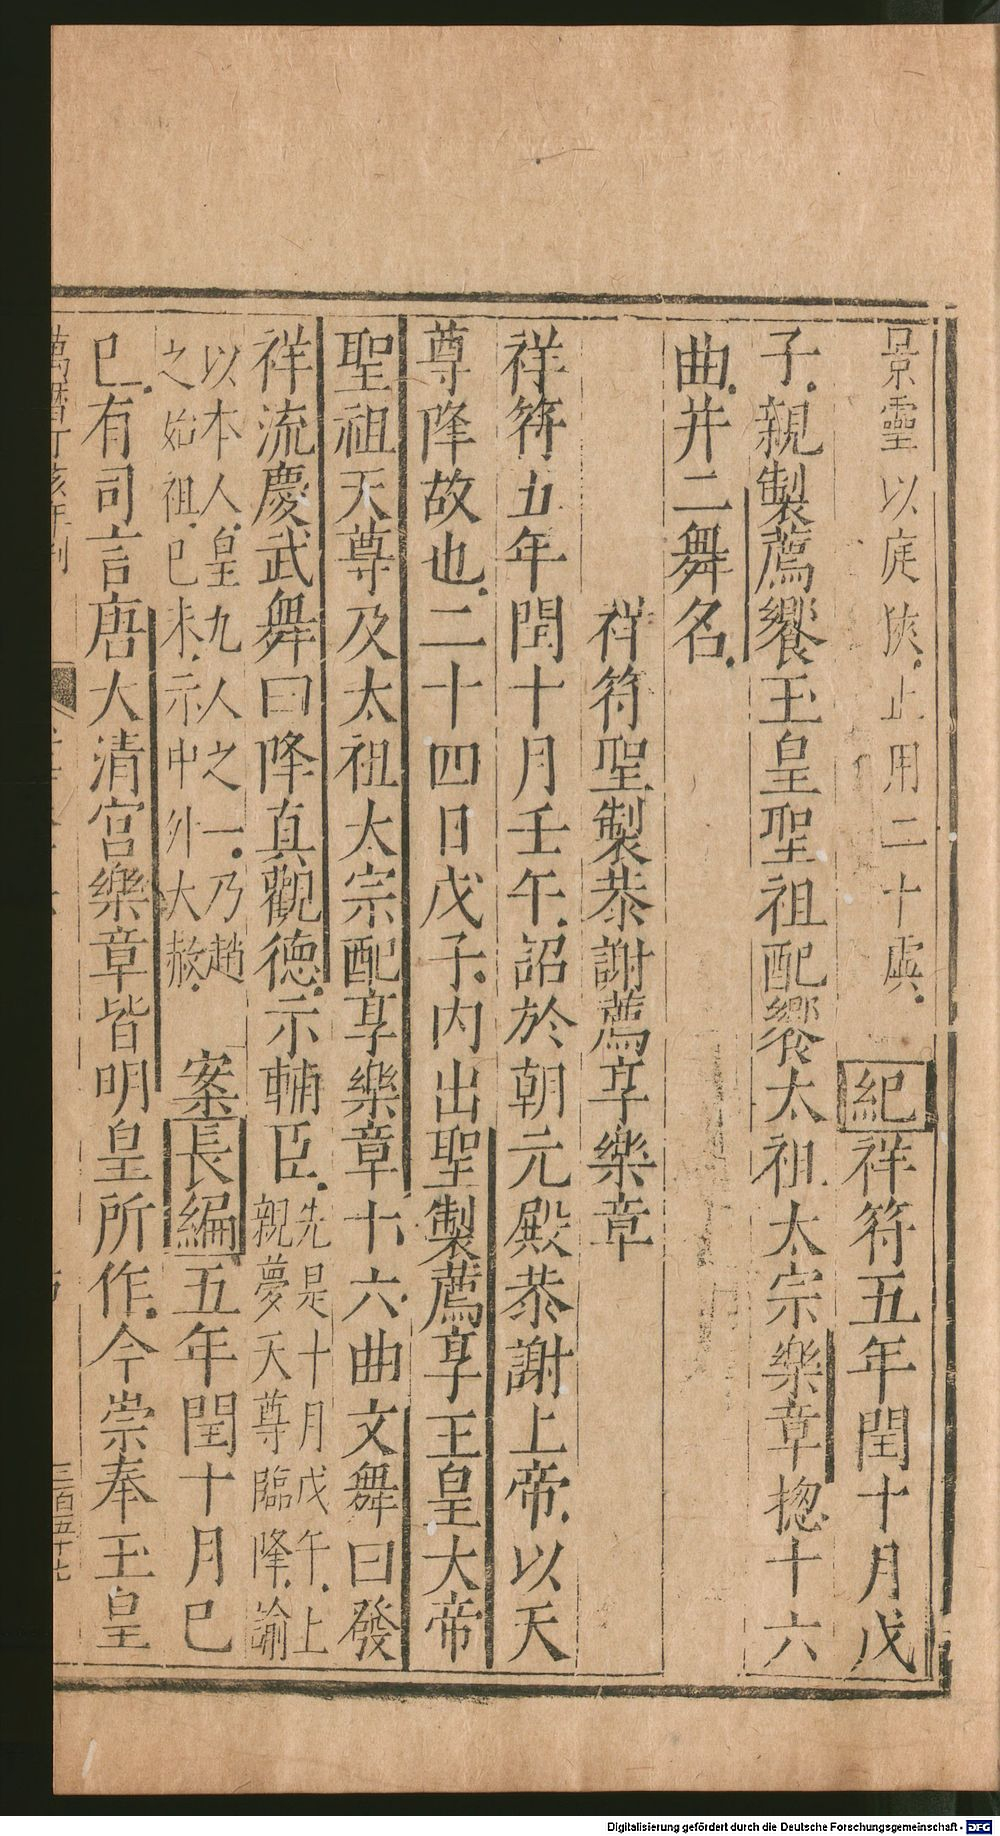 景靈以庭狹止用二十虡紀祥符五年閏十月戊
子親製薦饗玉皇聖祖配饗太祖太宗樂章揔十六
曲并二舞名
祥符聖製恭謝薦享樂章
祥符五年閏十月壬午詔於朝元殿恭謝上帝以天
尊降故也二十四日戊子内出聖製薦享玉皇大帝
聖祖天尊及太祖太宗配享樂章十六曲文舞曰發
祥流慶武舞曰降真觀德示輔臣先是十月戊午上
親夢天尊臨降諭
以本人皇九人之一乃趙
之始祖已未示中外大赦案長編五年閏十月己
已有司言唐大清宮樂章皆明皇所作今崇奉玉皇
三百五十七
Digitalisierung gefördert durch die Deutsche Forschungsgemeinschaft - DFG